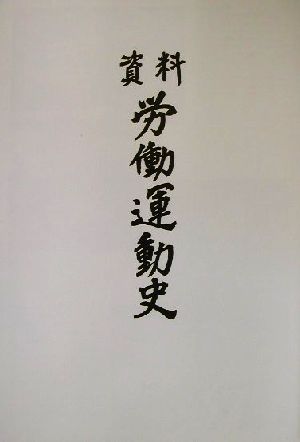 資料
労働運動史